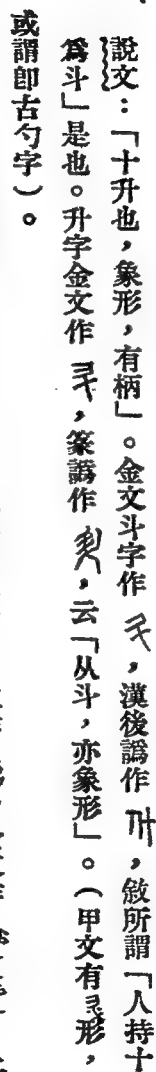 說文：「十升也，象形，有柄」。金文斗字作，漢後譌作，敘所謂「人持十
爲斗」是也。升字金文作，篆譌作，云「从斗，亦象形」。（甲文有形，
或謂卽古勺字）。